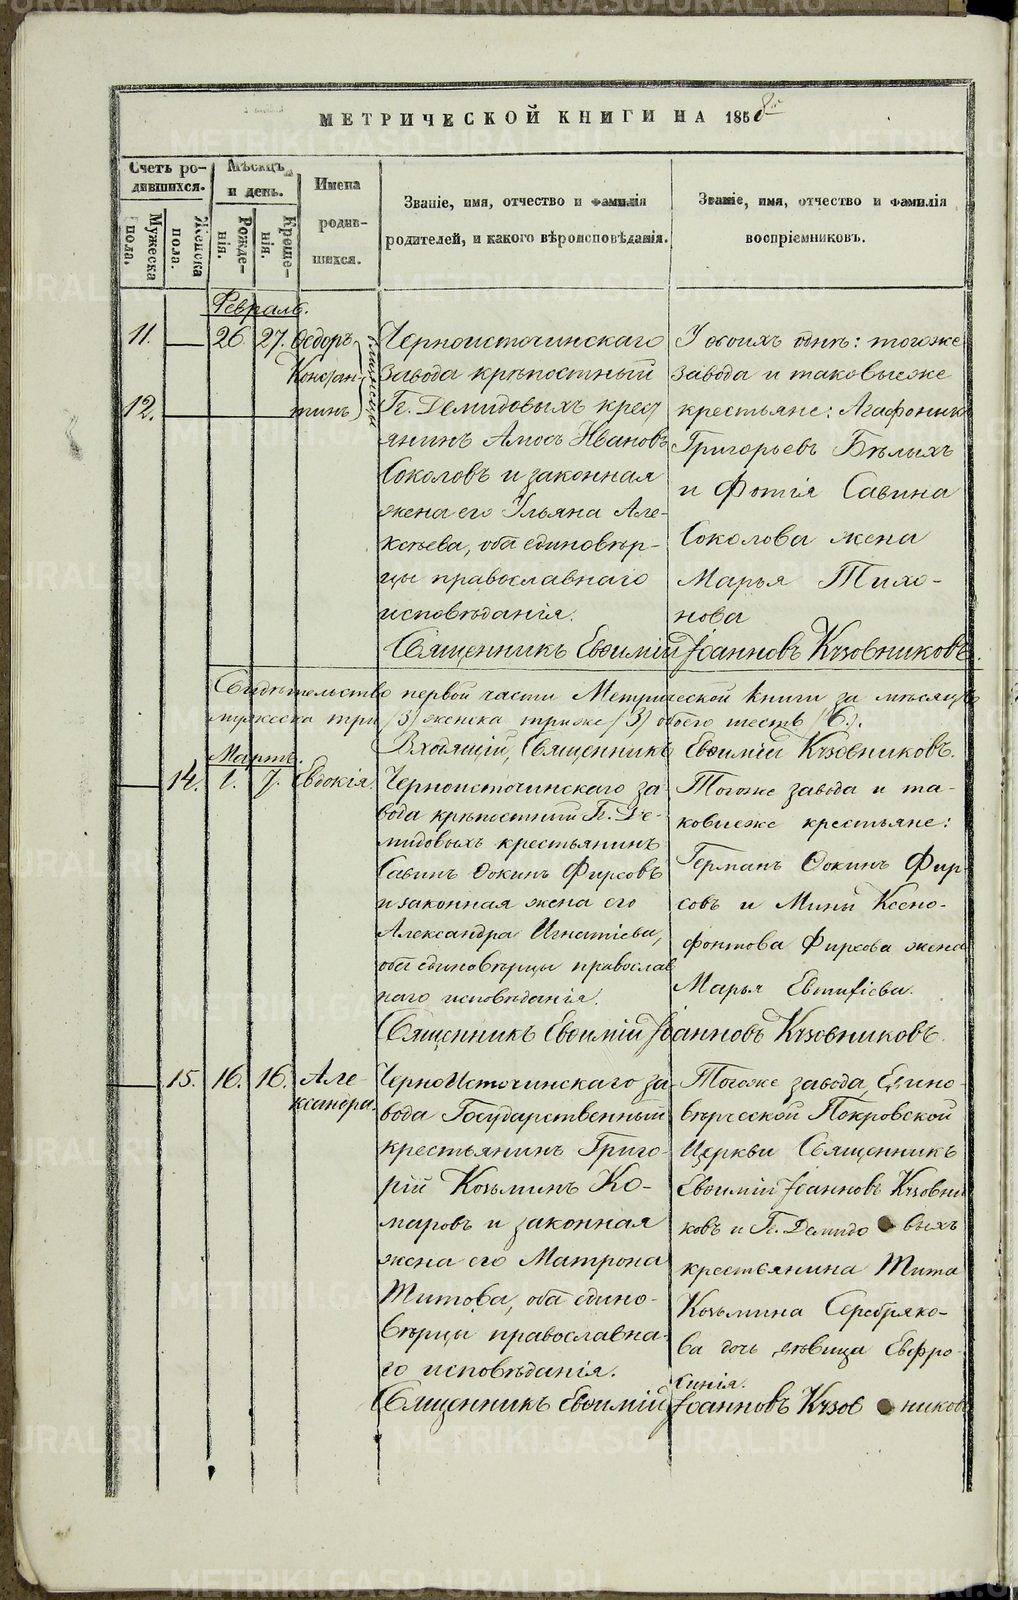 МЕТРИЧЕСКОЙ КНИГИ НА 1858й
Счетъ ро-
дившихся.
Мужеска пола.
Женска пола.
Мѣсяцъ
и день.
Рожде-
нія.
Креще-
нія.
Имена
родив-
шихся.
Званіе, имя, отчество и фамилія
родителей, и какого вѣроисповѣданія.
Званіе, имя, отчество и фамилія
воспріемниковъ.
Февраль.
11. 26. 27. Ѳедоръ
Констан-
12. тинъ
близнецы
Черноисточинскаго
завода крѣпостный
Гг. Демидовыхъ крест
янинъ Амосъ Ивановъ
Соколовъ и законная
жена его Ульяна Але-
ксѣева, оба единовѣр-
цы православнаго
исповѣданія.
У обоихъ однѣ: тогоже
завода и таковыеже
крестьяне: Агафоникъ
Григорьевъ Бѣлыхъ
и Фотія Савина
Соколова жена
Марья Тихо-
нова
Священникъ Евѳимій Іоанновъ Кузовниковъ.
Свидѣтельство первой части Метрической книги за мѣсяцъ
мужеска три /3/ женска трижъ /3/ обоего шесть /6/.
Входящій, Священникъ Евѳимій Кузовниковъ.
Мартъ.
14. 1. 7. Евдокія.
Черноисточинскаго за-
вода крѣпостный Гг. Де-
мидовыхъ крестьянинъ
Савинъ Ѳокинъ Фирсовъ
и законная жена его
Александра Игнатіева,
оба единовѣрцы православ
наго исповѣданія.
Тогоже завода и та-
ковыеже крестьяне:
Германъ Ѳокинъ Фир
совъ и Мины Ксено-
фонтова Фирсова жена
Марья Евтифіева.
Священникъ Евѳимій Іоанновъ Кузовниковъ.
15. 16. 16. Але-
ксандра.
ЧерноИсточинскаго за-
вода Государственный
крестьянинъ Григо-
рій Козьминъ Ко-
маровъ и законная
жена его Матрона
Титова, оба едино-
вѣрцы православна-
го исповѣданія.
Тогоже завода, Едино-
вѣрческой Покровской
Церкви Священникъ
Евѳимій Іоанновъ Кузовни
ковъ и Гг. Демидовыхъ
крестьянина Тита
Козьмина Серебряко-
ва дочь дѣвица Евфро-
синія.
Священникъ Евѳимій Іоанновъ Кузовниковъ
METRIKI.GASO-URAL.RU